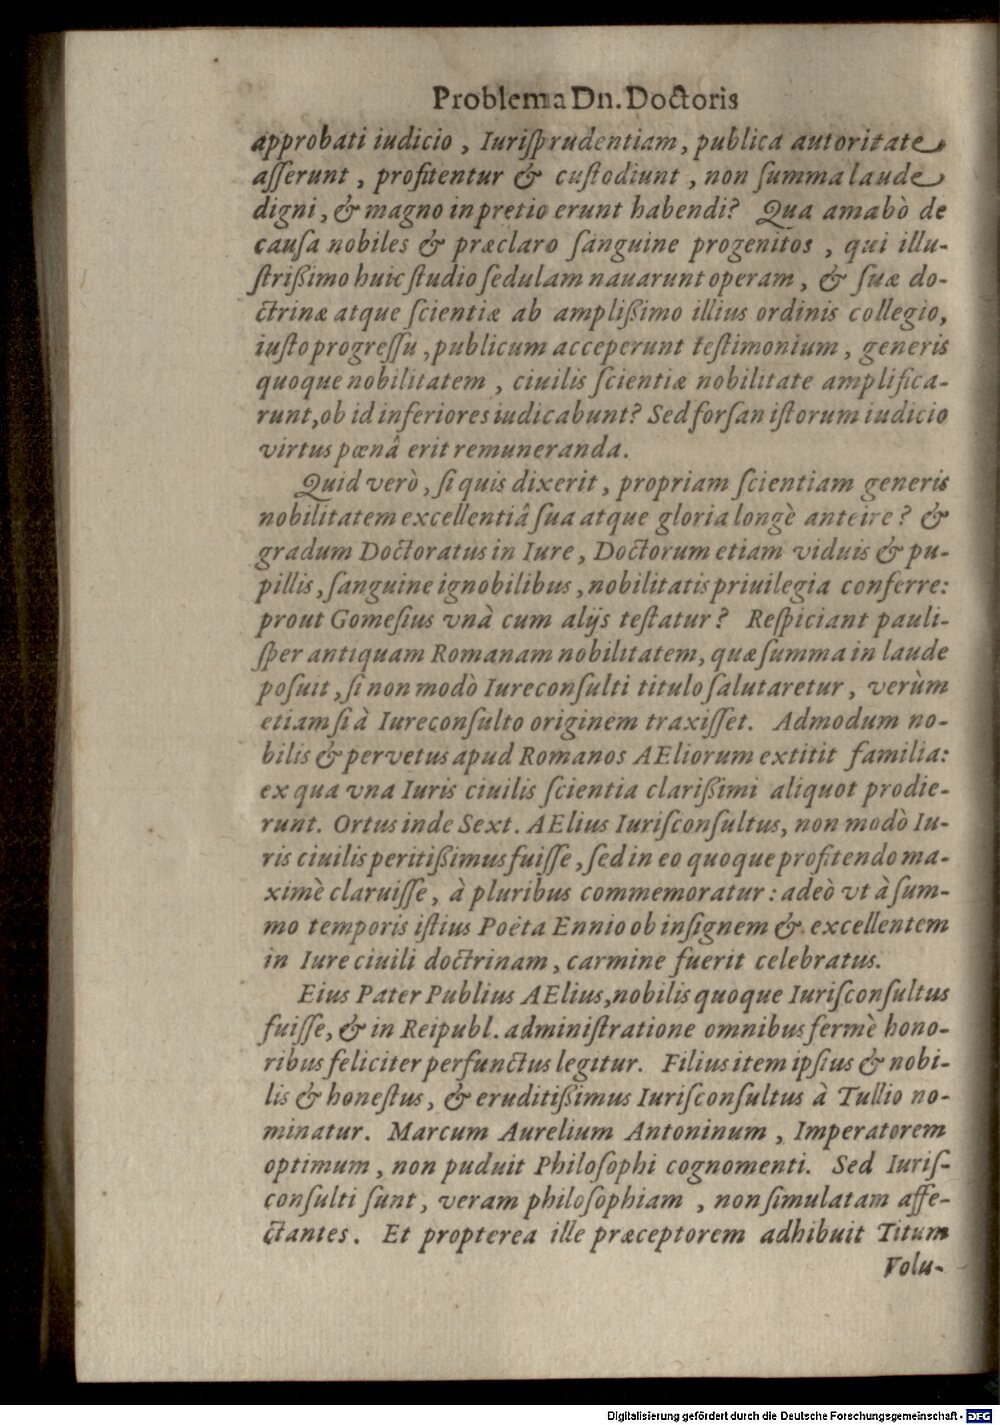 Problema Dn. Doctoris
approbati iudicio, Iuriſprudentiam, publica autoritate
aſſerunt, profitentur & cuſtodiunt, non ſumma laude
digni, & magno in pretio erunt habendi? Qua amabò de
cauſa nobiles & præclaro ſanguine progenitos, qui illu-
ſtrißimo huic ſtudio ſedulam nauarunt operam, & ſuæ do-
ctrinæ atque ſcientiæ ab amplißimo illius ordinis collegio,
iuſto progreſſu, publicum acceperunt teſtimonium, generis
quoque nobilitatem, ciuilis ſcientiæ nobilitate amplifica-
runt, ob id inferiores iudicabunt? Sed forſan iſtorum iudicio
virtus pœnâ erit remuneranda.
Quid verò, ſi quis dixerit, propriam ſcientiam generis
nobilitatem excellentiâ ſua atque gloria longè anteire? &
gradum Doctoratus in Iure, Doctorum etiam viduis & pu-
pillis, ſanguine ignobilibus, nobilitatis priuilegia conferre:
prout Gomeſius vnà cum alijs teſtatur? Reſpiciant pauli-
ſper antiquam Romanam nobilitatem, quæ ſumma in laude
poſuit, ſi non modò Iureconſulti titulo ſalutaretur, verùm
etiam ſi à Iureconſulto originem traxiſſet. Admodum no-
bilis & pervetus apud Romanos AEliorum extitit familia:
ex qua vna Iuris ciuilis ſcientia clarißimi aliquot prodie-
runt. Ortus inde Sext. AElius Iuriſconſultus, non modò Iu-
ris ciuilis peritißimus fuiſſe, ſed in eo quoque profitendo ma-
ximè claruiſſe, à pluribus commemoratur: adeò vt à ſum-
mo temporis iſtius Poëta Ennio ob inſignem & excellentem
in Iure ciuili doctrinam, carmine fuerit celebratus.
Eius Pater Publius AElius, nobilis quoque Iuriſconſultus
fuiſſe, & in Reipubl. adminiſtratione omnibus fermè hono-
ribus feliciter perfunctus legitur. Filius item ipſius & nobi-
lis & honeſtus, & eruditißimus Iuriſconſultus à Tullio no-
minatur. Marcum Aurelium Antoninum, Imperatorem
optimum, non puduit Philoſophi cognomenti. Sed Iuriſ-
conſulti ſunt, veram philoſophiam, non ſimulatam affe-
ctantes. Et propterea ille præceptorem adhibuit Titum
Volu-
Digitalisierung gefördert durch die Deutsche Forschungsgemeinschaft - DFG